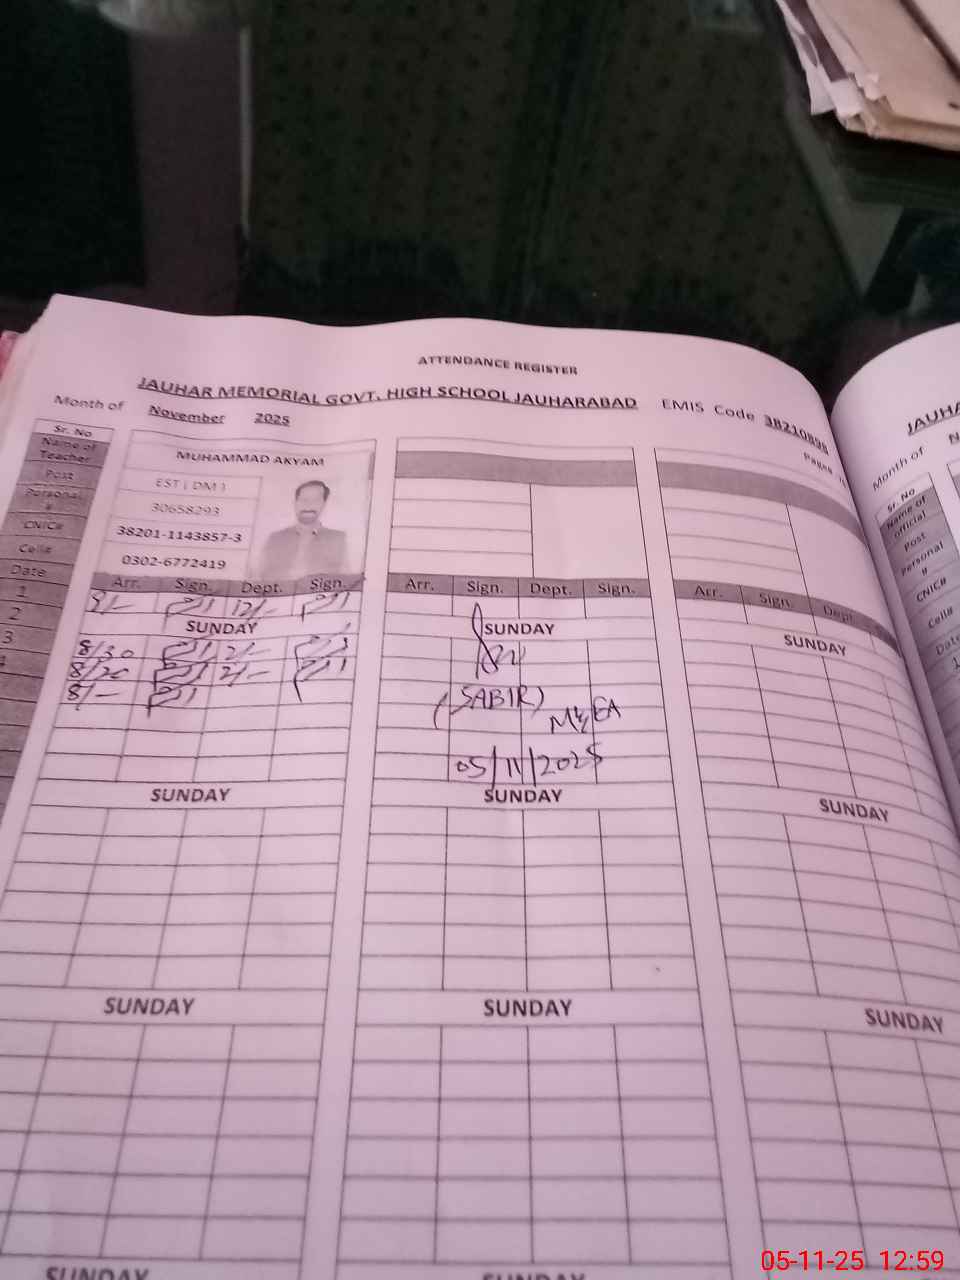 ATTENDANCE REGISTER
JAUHAR MEMORIAL GOVT. HIGH SCHOOL JAUHARABAD
EMIS Code 38210898
Month of November 2025
Pages
Sr. No
Name of Teacher
MUHAMMAD AKYAM
Post
EST ( DM )
Personal #
30658293
CNIC#
38201-1143857-3
Cell#
0302-6772419
Date
Arr. Sign. Dept. Sign.
Arr. Sign. Dept. Sign.
Arr. Sign. Dept.
1
12/-
2
SUNDAY
SUNDAY
SUNDAY
3
8/30 2/-
8/20 2/-
8/-
(SABIR)
MEA
05/11/2025
SUNDAY
SUNDAY
SUNDAY
SUNDAY
SUNDAY
SUNDAY
SUNDAY
SUNDAY
JAUHA
Month of N
Sr. No
Name of official
Post
Personal #
CNIC#
Cell#
Date
1
05-11-25 12:59